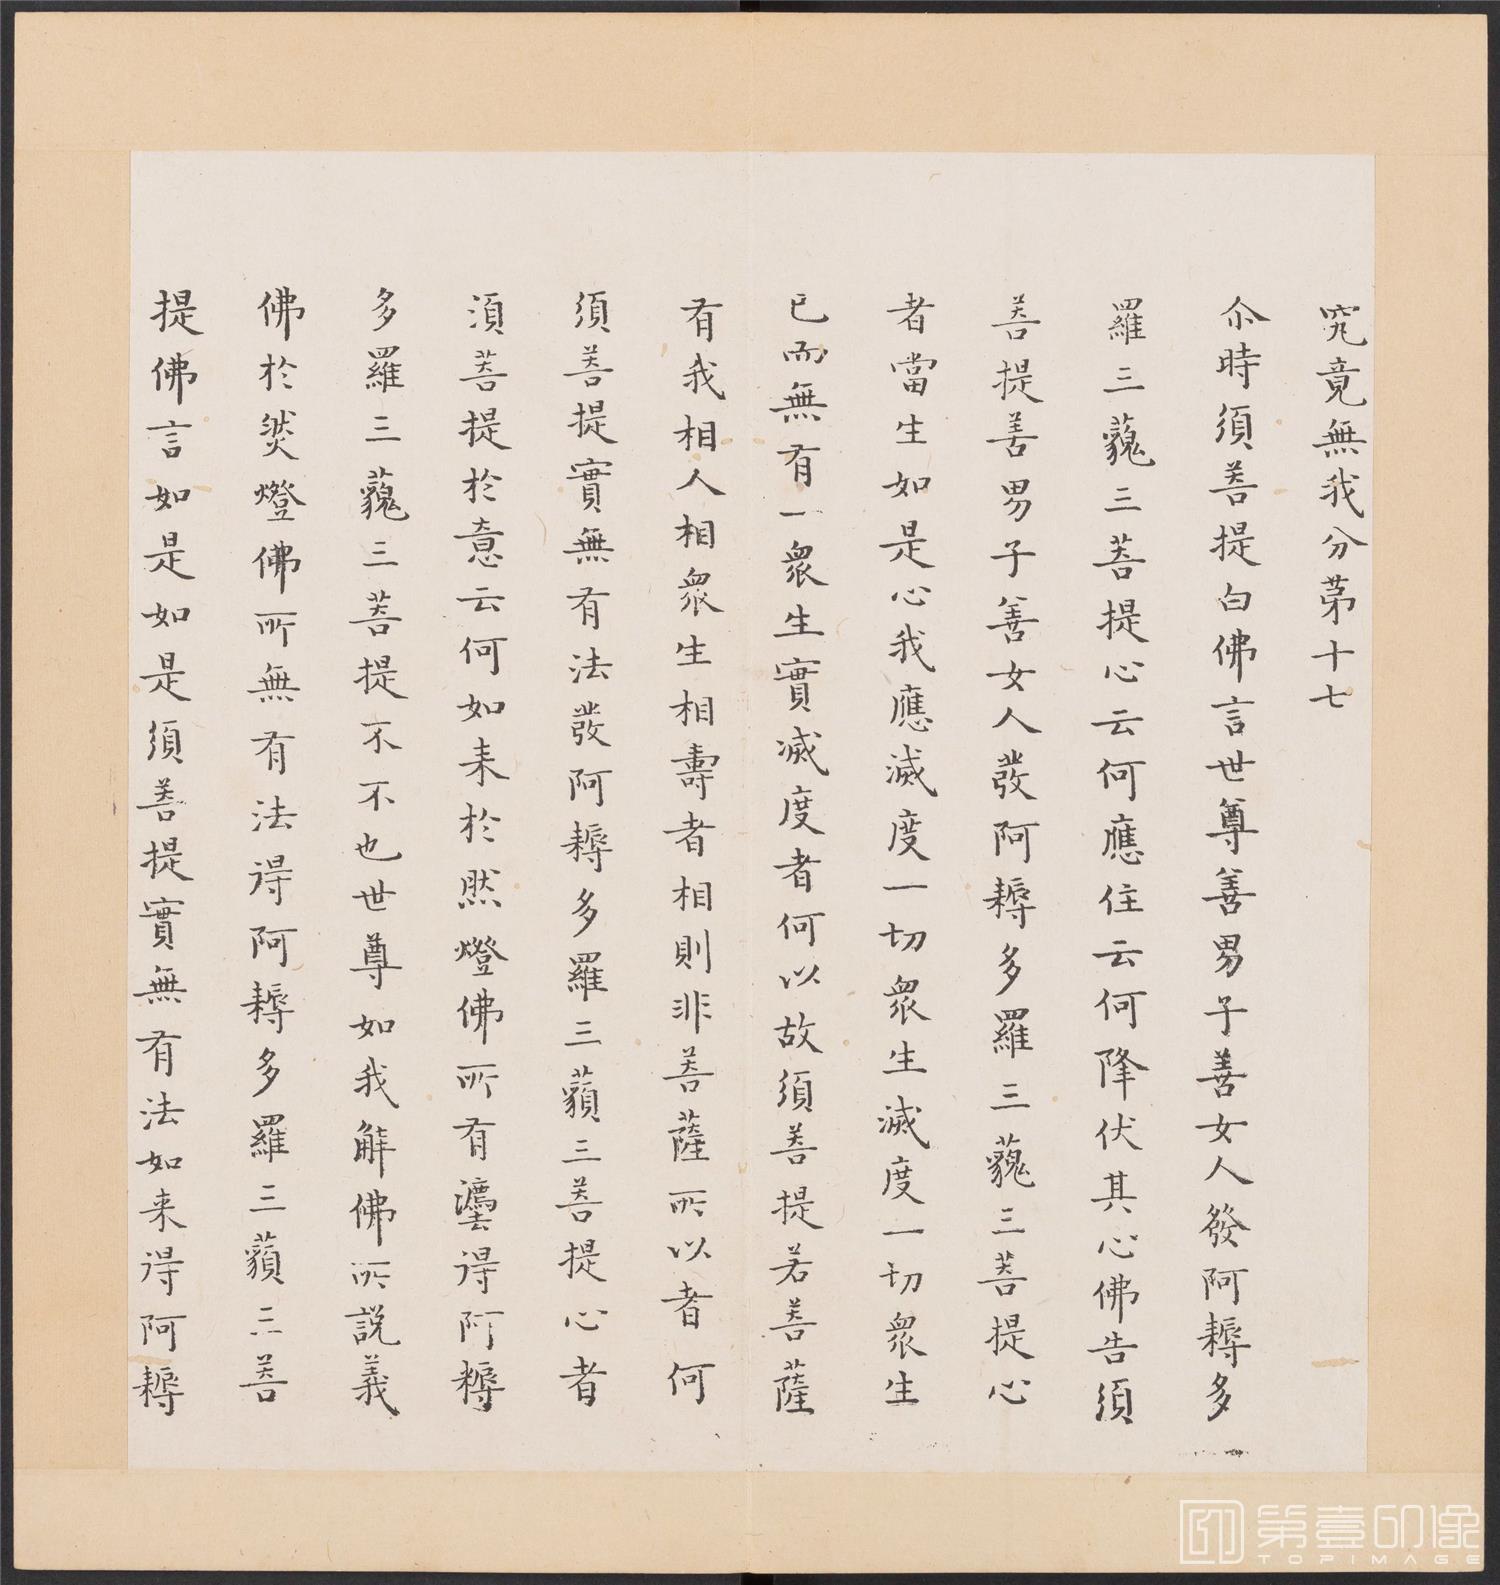 究竟無我分苐十七
尒時須菩提白佛言世尊善男子善女人發阿耨多
羅三藐三菩提心云何應住云何降伏其心佛告須
菩提善男子善女人發阿耨多羅三藐三菩提心
者當生如是心我應滅度一切衆生滅度一切衆生
已而無有一衆生實滅度者何以故須菩提若菩薩
有我相人相衆生相壽者相則非菩薩所以者何
須菩提實無有法發阿耨多羅三藐三菩提心者
須菩提於意云何如来於然燈佛所有法得阿耨
多羅三藐三菩提不不也世尊如我解佛所說義
佛於然燈佛所無有法得阿耨多羅三藐三菩
提佛言如是如是須菩提實無有法如来得阿耨
第壹印像
TOPIMAGE